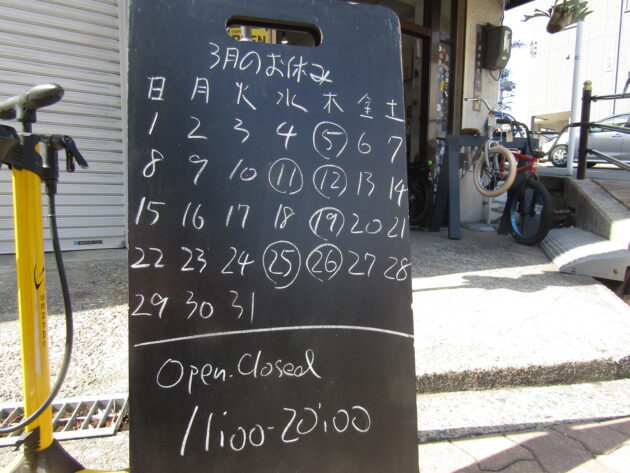 3月のお休み
日 月 火 水 木 金 土
1 2 3 4 ⑤ 6 7
8 9 10 ⑪ ⑫ 13 14
15 16 17 18 ⑲ 20 21
22 23 24 ㉕ ㉖ 27 28
29 30 31
Open.Closed
11:00-20:00